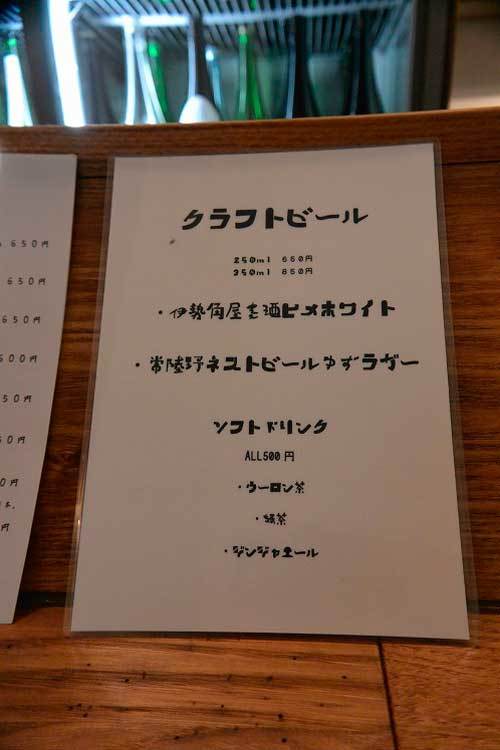 クラフトビール
250ml 660円
350ml 860円
・伊勢角屋麦酒ヒメホワイト
・常陸野ネストビールゆずラガー
ソフトドリンク
ALL500円
・ウーロン茶
・緑茶
・ジンジャエール
650円
650円
650円
600円
50円
50円
0円
円